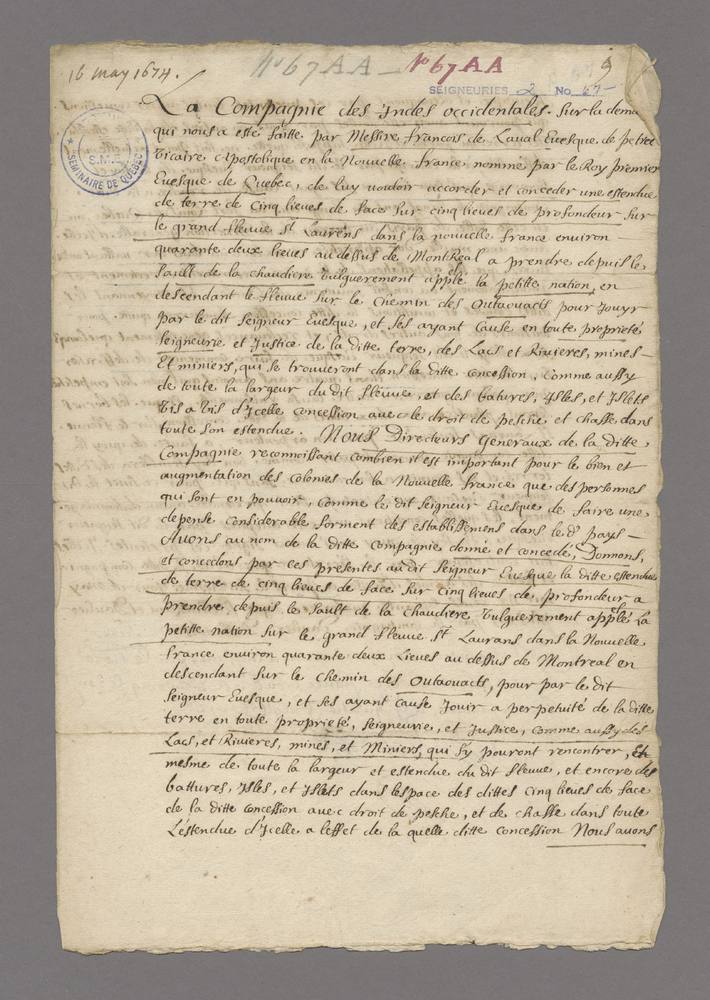 16 may 1674.
N° 67 AA - N° 67 AA
9
SEIGNEURIES 2 No 67
SEMINAIRE DE QUEBEC
S.M.E.
La Compagnie des Indes occidentales. Sur la dema
qui nous a esté faitte par Messire francois de Laval Evesque de petrée
Vicaire Apostolique en la Nouvelle france nommé par le Roy premier
Evesque de Quebec, de luy vouloir accorder et conceder une estendue
de terre de Cinq lieues de face sur cinq lieues de profondeur sur
le grand fleuve St Laurens dans la nouvelle france environ
quarante deux lieues au dessus de MontReal a prendre depuis le
Sault de la chaudiere vulguerement appellé la petitte nation, en
descendant le fleuve sur le chemin des Outaouacts pour Jouyr
par le dit Seigneur Evesque, et ses ayant Cause en toute proprieté
seigneurie et Justice de la ditte terre, des Lacs et Rivieres, mines
Et miniers, qui se trouveront dans la ditte concession, comme aussy
de toute la largeur du dit fleuve, et des batures, Isles, et Islets
Vis a Vis d'Icelle concession avec le droit de pesche et chasse dans
toute son estendue. Nous Directeurs Generaux de la ditte
Compagnie reconnoissant combien il est important pour le bien et
augmentation des colonies de la Nouvelle france que des personnes
qui sont en pouvoir, comme le dit Seigneur Evesque de faire une
depense considerable forment des establissemens dans le d° pays
Avons au nom de la ditte compagnie donné et concedé, Donnons,
et concedons par ces presentes au dit Seigneur Evesque la ditte estendue
de terre de cinq lieues de face sur cinq lieues de profondeur a
prendre, depuis le Sault de la chaudiere vulguerement appellé La
petitte nation sur le grand fleuve St Laurans dans la Nouvelle
france environ quarante deux Lieues au dessus de Montreal en
descendant sur le chemin des Outaouacts, pour par le dit
Seigneur Evesque, et ses ayant cause Jouir a perpetuité de la ditte
terre en toute proprieté, seigneurie, et Justice, comme aussy des
Lacs, et Rivieres, mines, et Miniers, qui sy pouront rencontrer, Et
mesme de toute la largeur et estendue du dit fleuve, et encore des
battures, Isles, et Islets dans lespace des dittes cinq lieues de face
de la ditte concession avec droit de pesche, et de chasse dans toute
L'estendue d'Icelle a leffet de la quelle ditte concession Nous avons